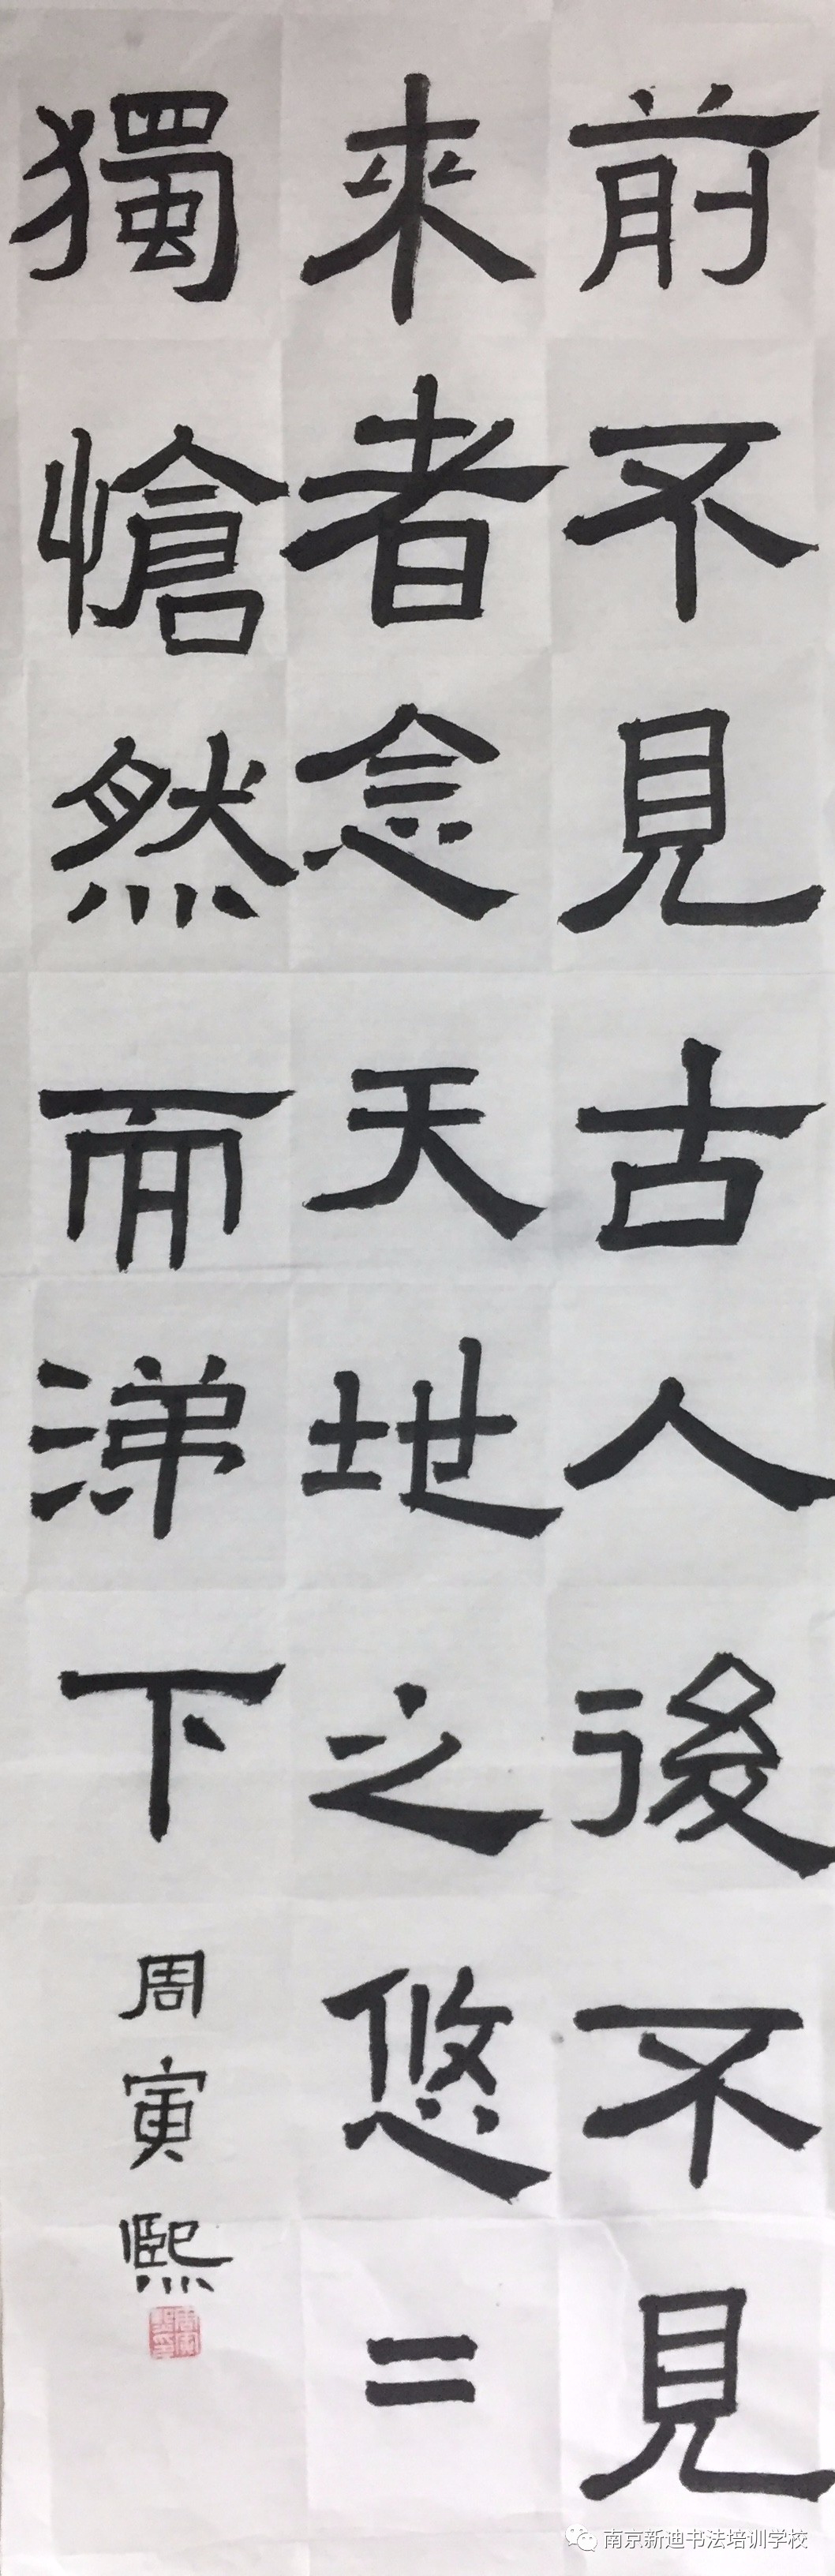 前不見古人後不見
來者念天地之悠=
獨愴然而涕下
周寅熙
南京新迪书法培训学校